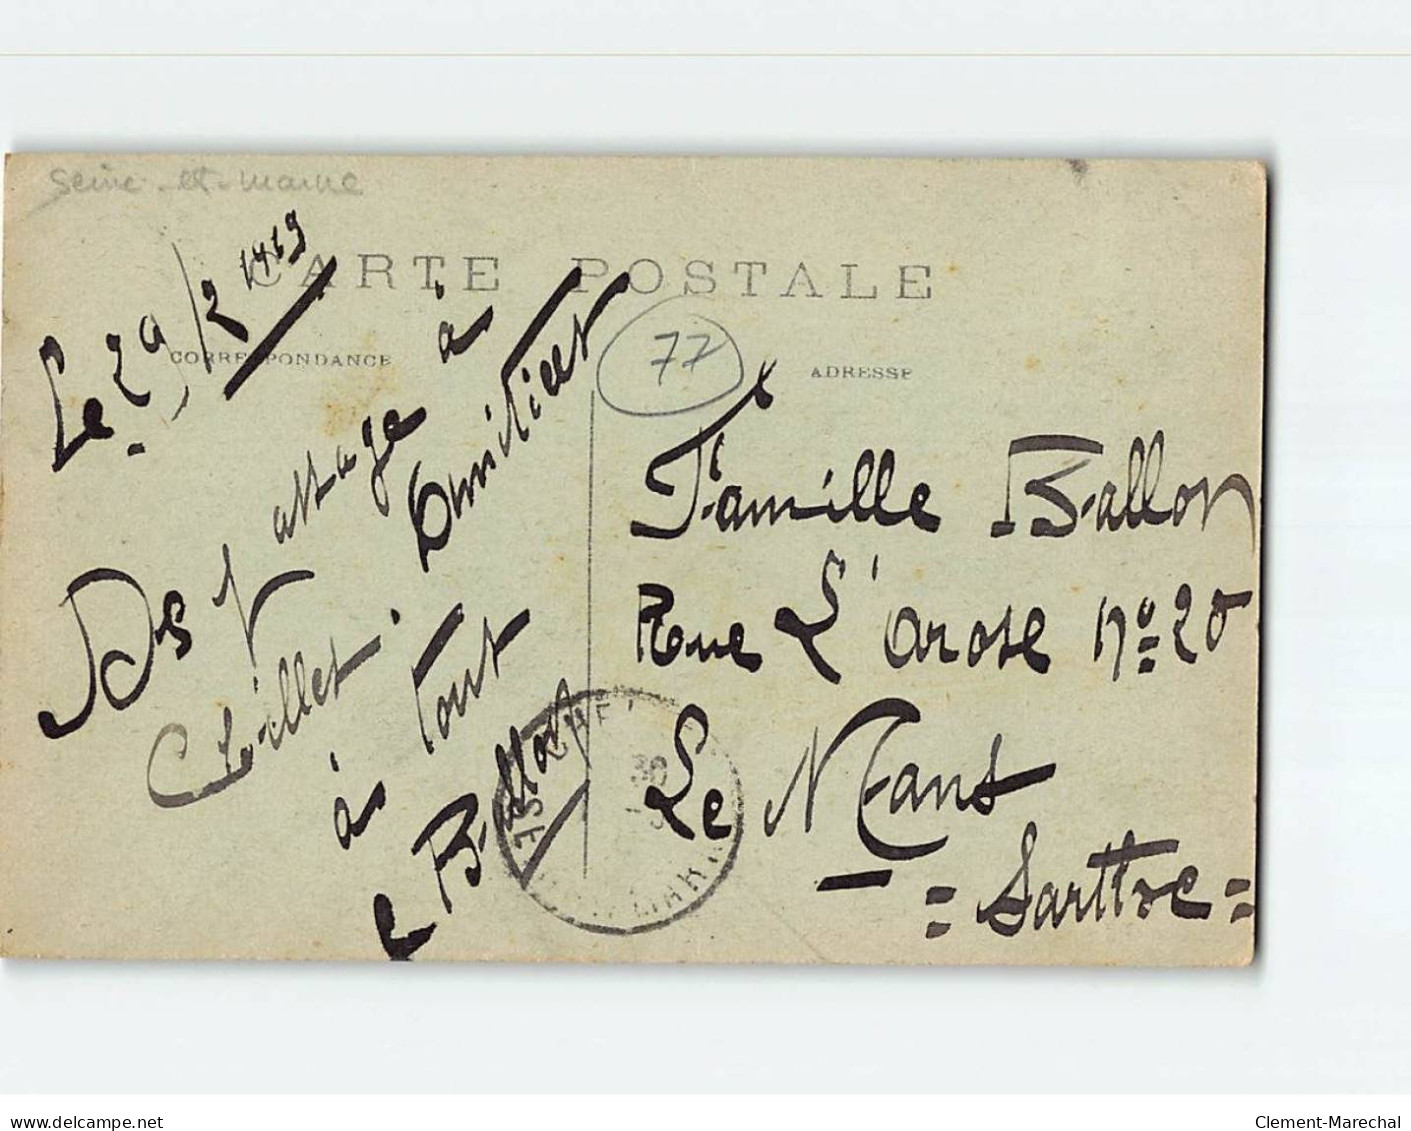 Seine-et-Marne
CARTE POSTALE
CORRESPONDANCE
ADRESSE
77
Le 29/2 1919
De
à
Amitiees
à Tout
R Ballon
Famille Ballon
Rue L'arose N° 20
Le Mans
= Sarttre =
delcampe.net
Clement-Marechal